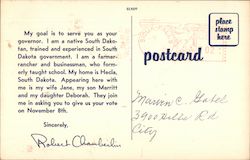 My goal is to serve you as your
governor. I am a native South Dako-
tan, trained and experienced in South
Dakota government. I am a farmer-
rancher and businessman, who for-
merly taught school. My home is Hecla,
South Dakota. Appearing here with
me is my wife Jane, my son Merritt
and my daughter Deborah. They join
me in asking you to give us your vote
on November 8th.
Sincerely,
Robert Chamberlin
place
stamp
here
postcard
Marvin C.
3900 Hills Rd
City